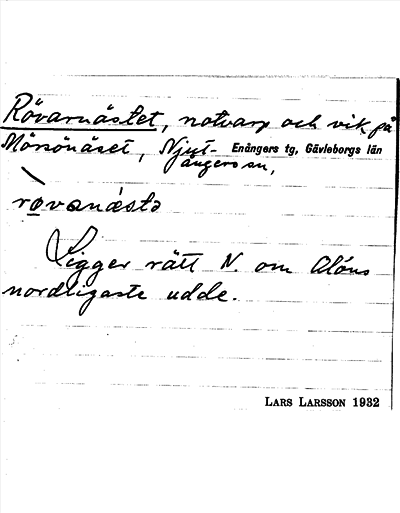 Rövarnästet, notvarp och vik på
Mörsönäset, Njut- Enångers tg, Gävleborgs län
ångers sn,
rövanästə
Ligger rätt N. om Alöns
nordligaste udde.
LARS LARSSON 1932